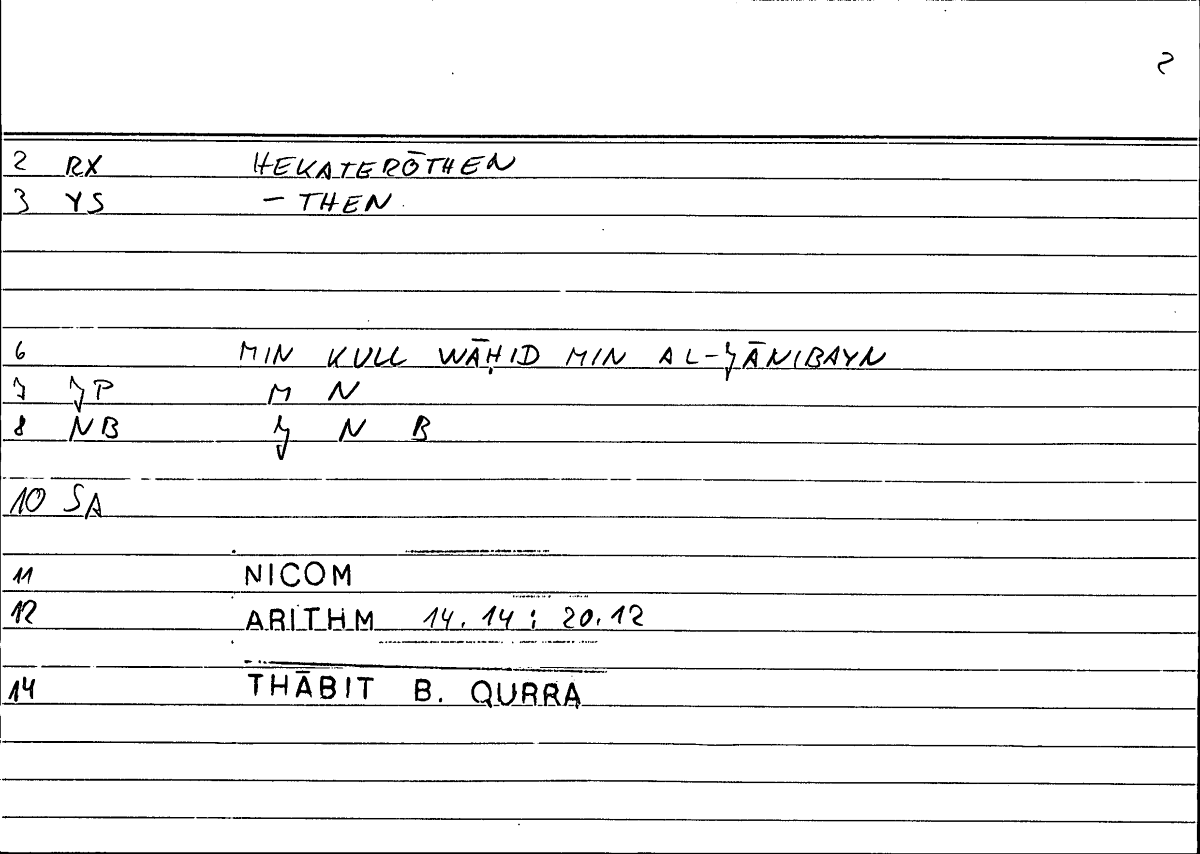 2
2 RX HEKATERŌTHEN
3 YS – THEN
6 MIN KULL WĀḤID MIN AL-JĀNIBAYN
7 JP M N
8 NB J N B
10 SA
11 NICOM
12 ARITHM 14.14 ; 20.12
14 THĀBIT B. QURRA